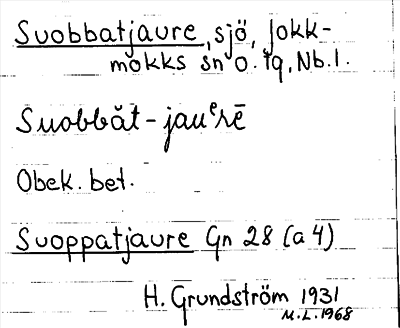 Suobbatjaure, sjö, Jokk-
mokks sn o. tg, Nb.l.
Suobbăt-jauᵉrē
Obek. bet.
Suoppatjaure Gn 28 (a 4)
H. Grundström 1931
M.L. 1968